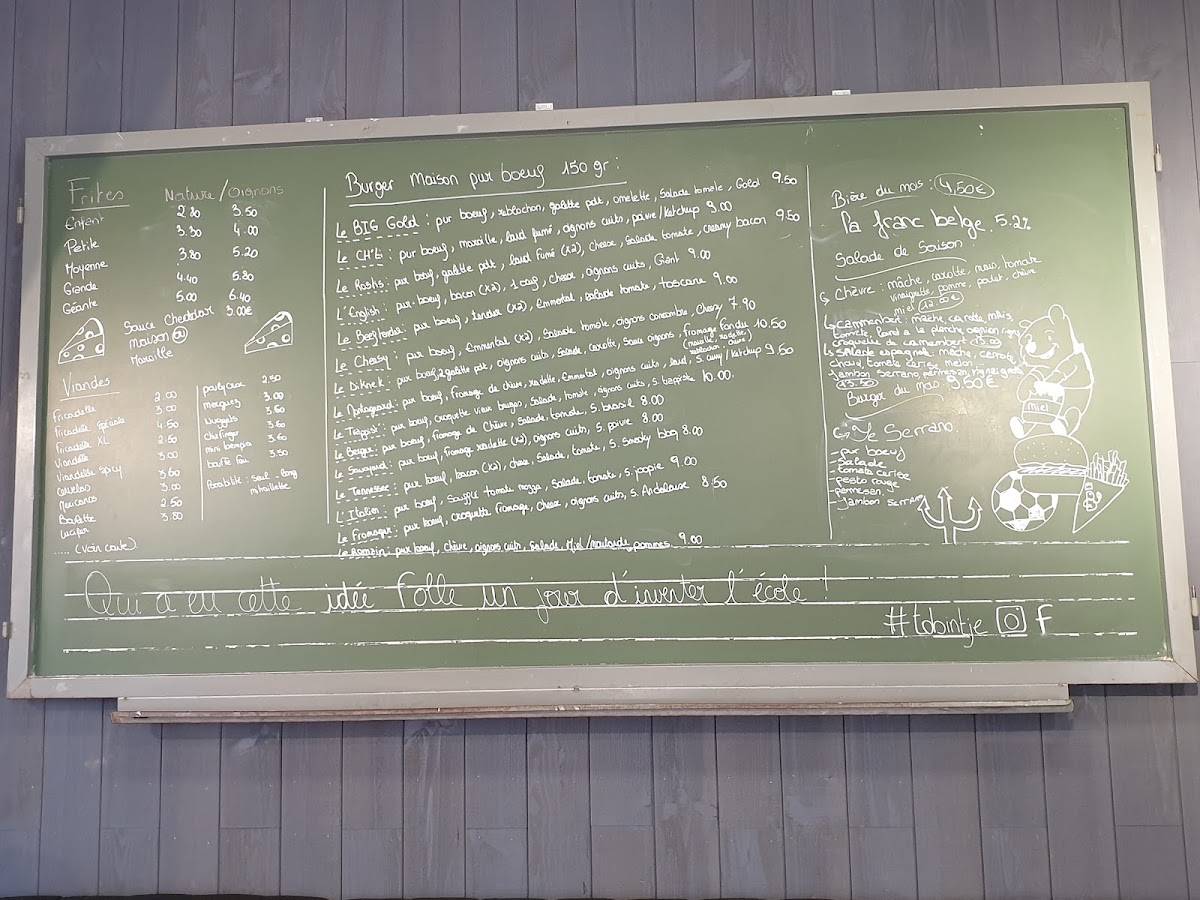 Frites Nature / Oignons
Enfant 2.80 3.50
Petite 3.30 4.00
Moyenne 3.80 5.20
Grande 4.40 5.80
Géante 5.00 6.40
Sauce Cheddar 3.00€
maison
Maroille
Viandes
Fricadelle 2.00
Fricadelle Spéciale 3.00
Fricadelle XL 4.50
Viandelle 2.50
Viandelle Spicy 3.00
Cervelas 3.60
Mexicanos 3.00
Boulette 2.50
Lucifer 3.80
..... (voir carte)
poulycroc 2.50
merguez 3.00
Nuggets 3.60
chixfinger 3.60
mini loempia 3.60
3.50
Possibilité : Seul - Pain
mitraillette
Burger Maison pur boeuf 150 gr :
Le BIG Gold : pur boeuf, reblochon, galette pdt, omelette, Salade tomate, Gold 9.50
Le CH'ti : pur boeuf, maroille, lard fumé, oignons cuits, poivre/ketchup 9.00
Le Rostis : pur boeuf, galette pdt, lard fumé (x2), chesse, Salade tomate, creamy bacon 9.50
L'English : pur boeuf, bacon (x2), 1 oeuf, chesse, oignons cuits, Giant 9.00
pur boeuf, tender (x2), Emmental, Salade tomate, toscane 9.00
Le Cheesy : pur boeuf, Emmental (x2), Salade tomate, oignons Cheezy 7.90
pur boeuf, 2 galette pdt, oignons cuits, Salade, carotte, Sauce oignons, fromage fondu 10.50
(maroille, raclette,
reblochon
Le Montagnard : pur boeuf, fromage de chèvre, raclette, Emmental, oignons cuits, lard, S. curry / ketchup 9.50
Le Trappist : pur boeuf, croquette vieux bruges, Salade, tomate, oignons cuits, S. trappiste 10.00
Le Berger : pur boeuf, fromage de Chèvre, Salade, tomate, S. brasil 8.00
Le Savoyard : pur boeuf, fromage raclette (x2), oignons cuits, S. poivre 8.00
Le Tennessee : pur boeuf, bacon (x2), chesse, Salade, tomate, S. Smoky bbq 8.00
L'Italien : pur boeuf, Souffle tomate mozza, Salade, tomate, S. joopie 9.00
Le Fromager : pur boeuf, croquette fromage, Chesse, oignons cuits, S. Andalouse 8.50
Le Romain : pur boeuf, chèvre, oignons cuits, Salade, Miel/moutarde, pommes 9.00
Bière du mois : 4,50€
Pa franc belge 5.2%
Salade de Saison
Chèvre : mâche, carotte, maïs, tomate
vinaigrette, pomme, poulet, chèvre
miel 12.00€
cammenbert : mâche carotte, maïs,
tomate, lard a la planche, oignon rouge
croquette de camembert 13.00
Salade espagnol : mêche, carrote,
chou, tomate cerise, melon
jambon serrano, permesan,
13.50
Burger du mois 9.50€
Le Serrano
- pur boeuf
- Salade
- tomate cerise
- pesto rouge
- permesan
- Jambon SERRANO
miel
Qui a eu cette idée Folle un jour d'inventer l'école !
#tobintje f